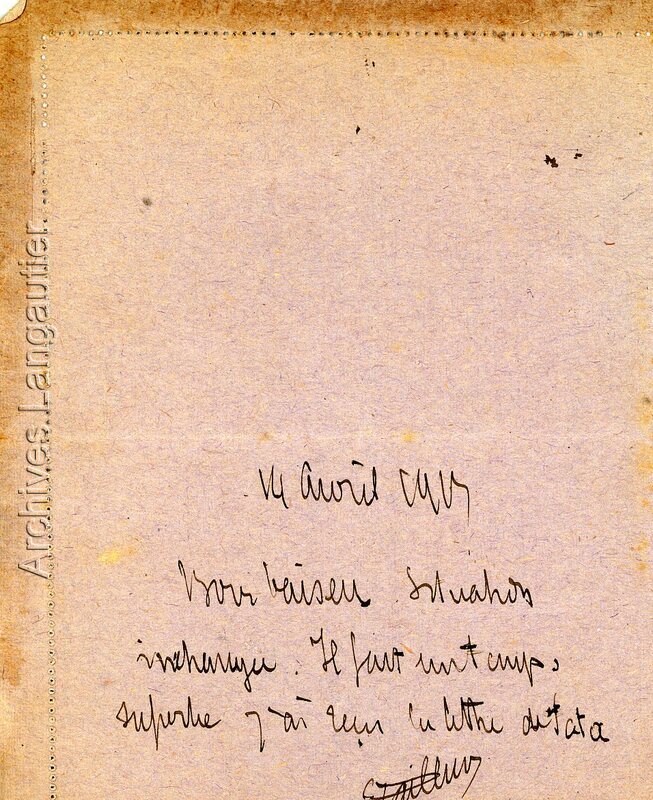 Archives Langautier
14 Avril 1915
Bons baisers. Situation
inchangée. Il fait un temps
superbe j'ai reçu la lettre de Tata